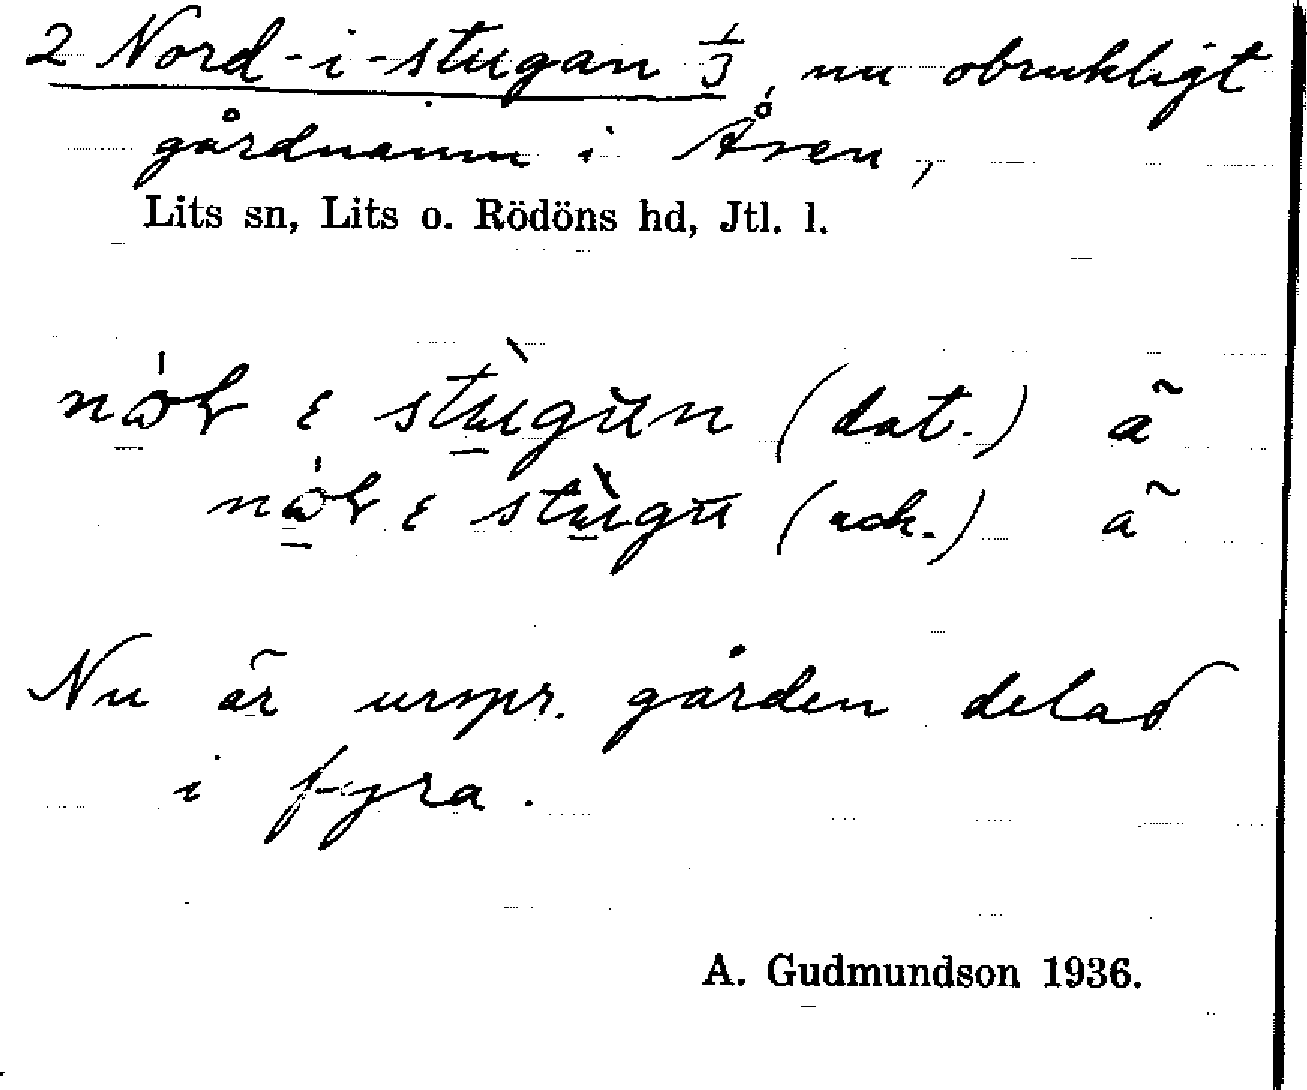 2 Nord-i-stugan 1/3, nu obrukligt
gårdnamn i Åren,
Lits sn, Lits o. Rödöns hd, Jtl. l.
ɛ (dat.) ã
ɛ (ack.) ã
Nu är urspr. gården delad
i fyra.
A. Gudmundson 1936.